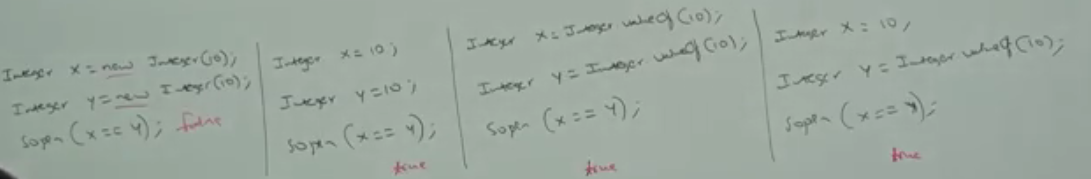 Integer x = new Integer(10);
Integer y = new Integer(10);
Sopln (x == y); false
Integer x = 10;
Integer y = 10;
Sopln (x == y);
true
Integer x = Integer valueOf(10);
Integer y = Integer valueOf(10);
Sopln (x == y);
true
Integer x = 10;
Integer y = Integer valueOf(10);
Sopln (x == y);
true